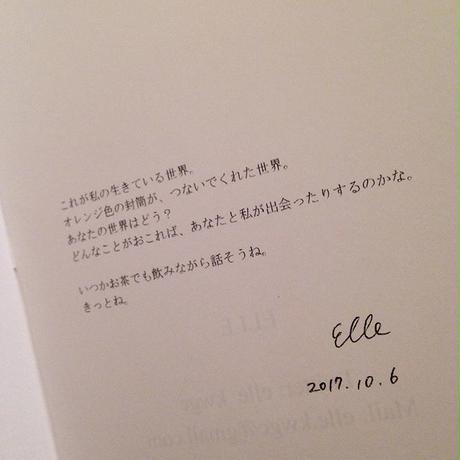 これが私の生きている世界。
オレンジ色の封筒が、つないでくれた世界。
あなたの世界はどう？
どんなことがおこれば、あなたと私が出会ったりするのかな。
いつかお茶でも飲みながら話そうね。
きっとね。
Elle
2017.10.6